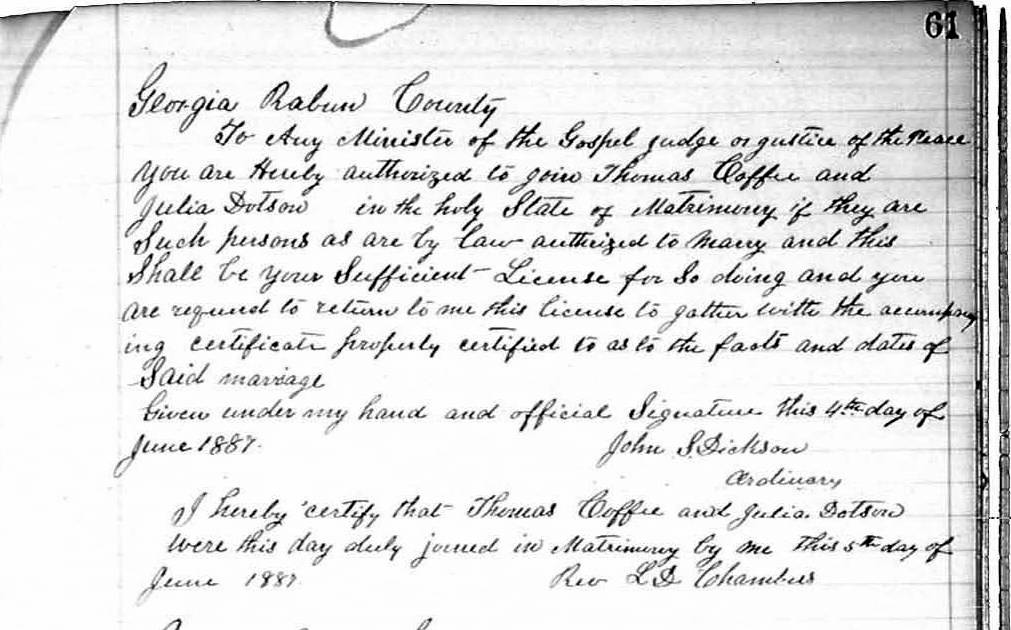 61
Georgia Rabun County
To Any Minister of the Gospel judge or justice of the Peace
You are Hereby authorized to join Thomas Coffee and
Julia Dotson in the holy State of Matrimony if they are
Such persons as are by law authrized to Marry and this
Shall be your Sufficient License for So doing and you
are requred to return to me this license to gather with the accompany
ing certificate properly certified to as to the facts and dates of
Said marriage
Given under my hand and official Signature this 4th day of
June 1887. John S. Dickson
Ordinary
I hereby certify that Thomas Coffee and Julia Dotson
Were this day duly joined in Matrimony by me this 5th day of
June 1887 Rev L D Chambers